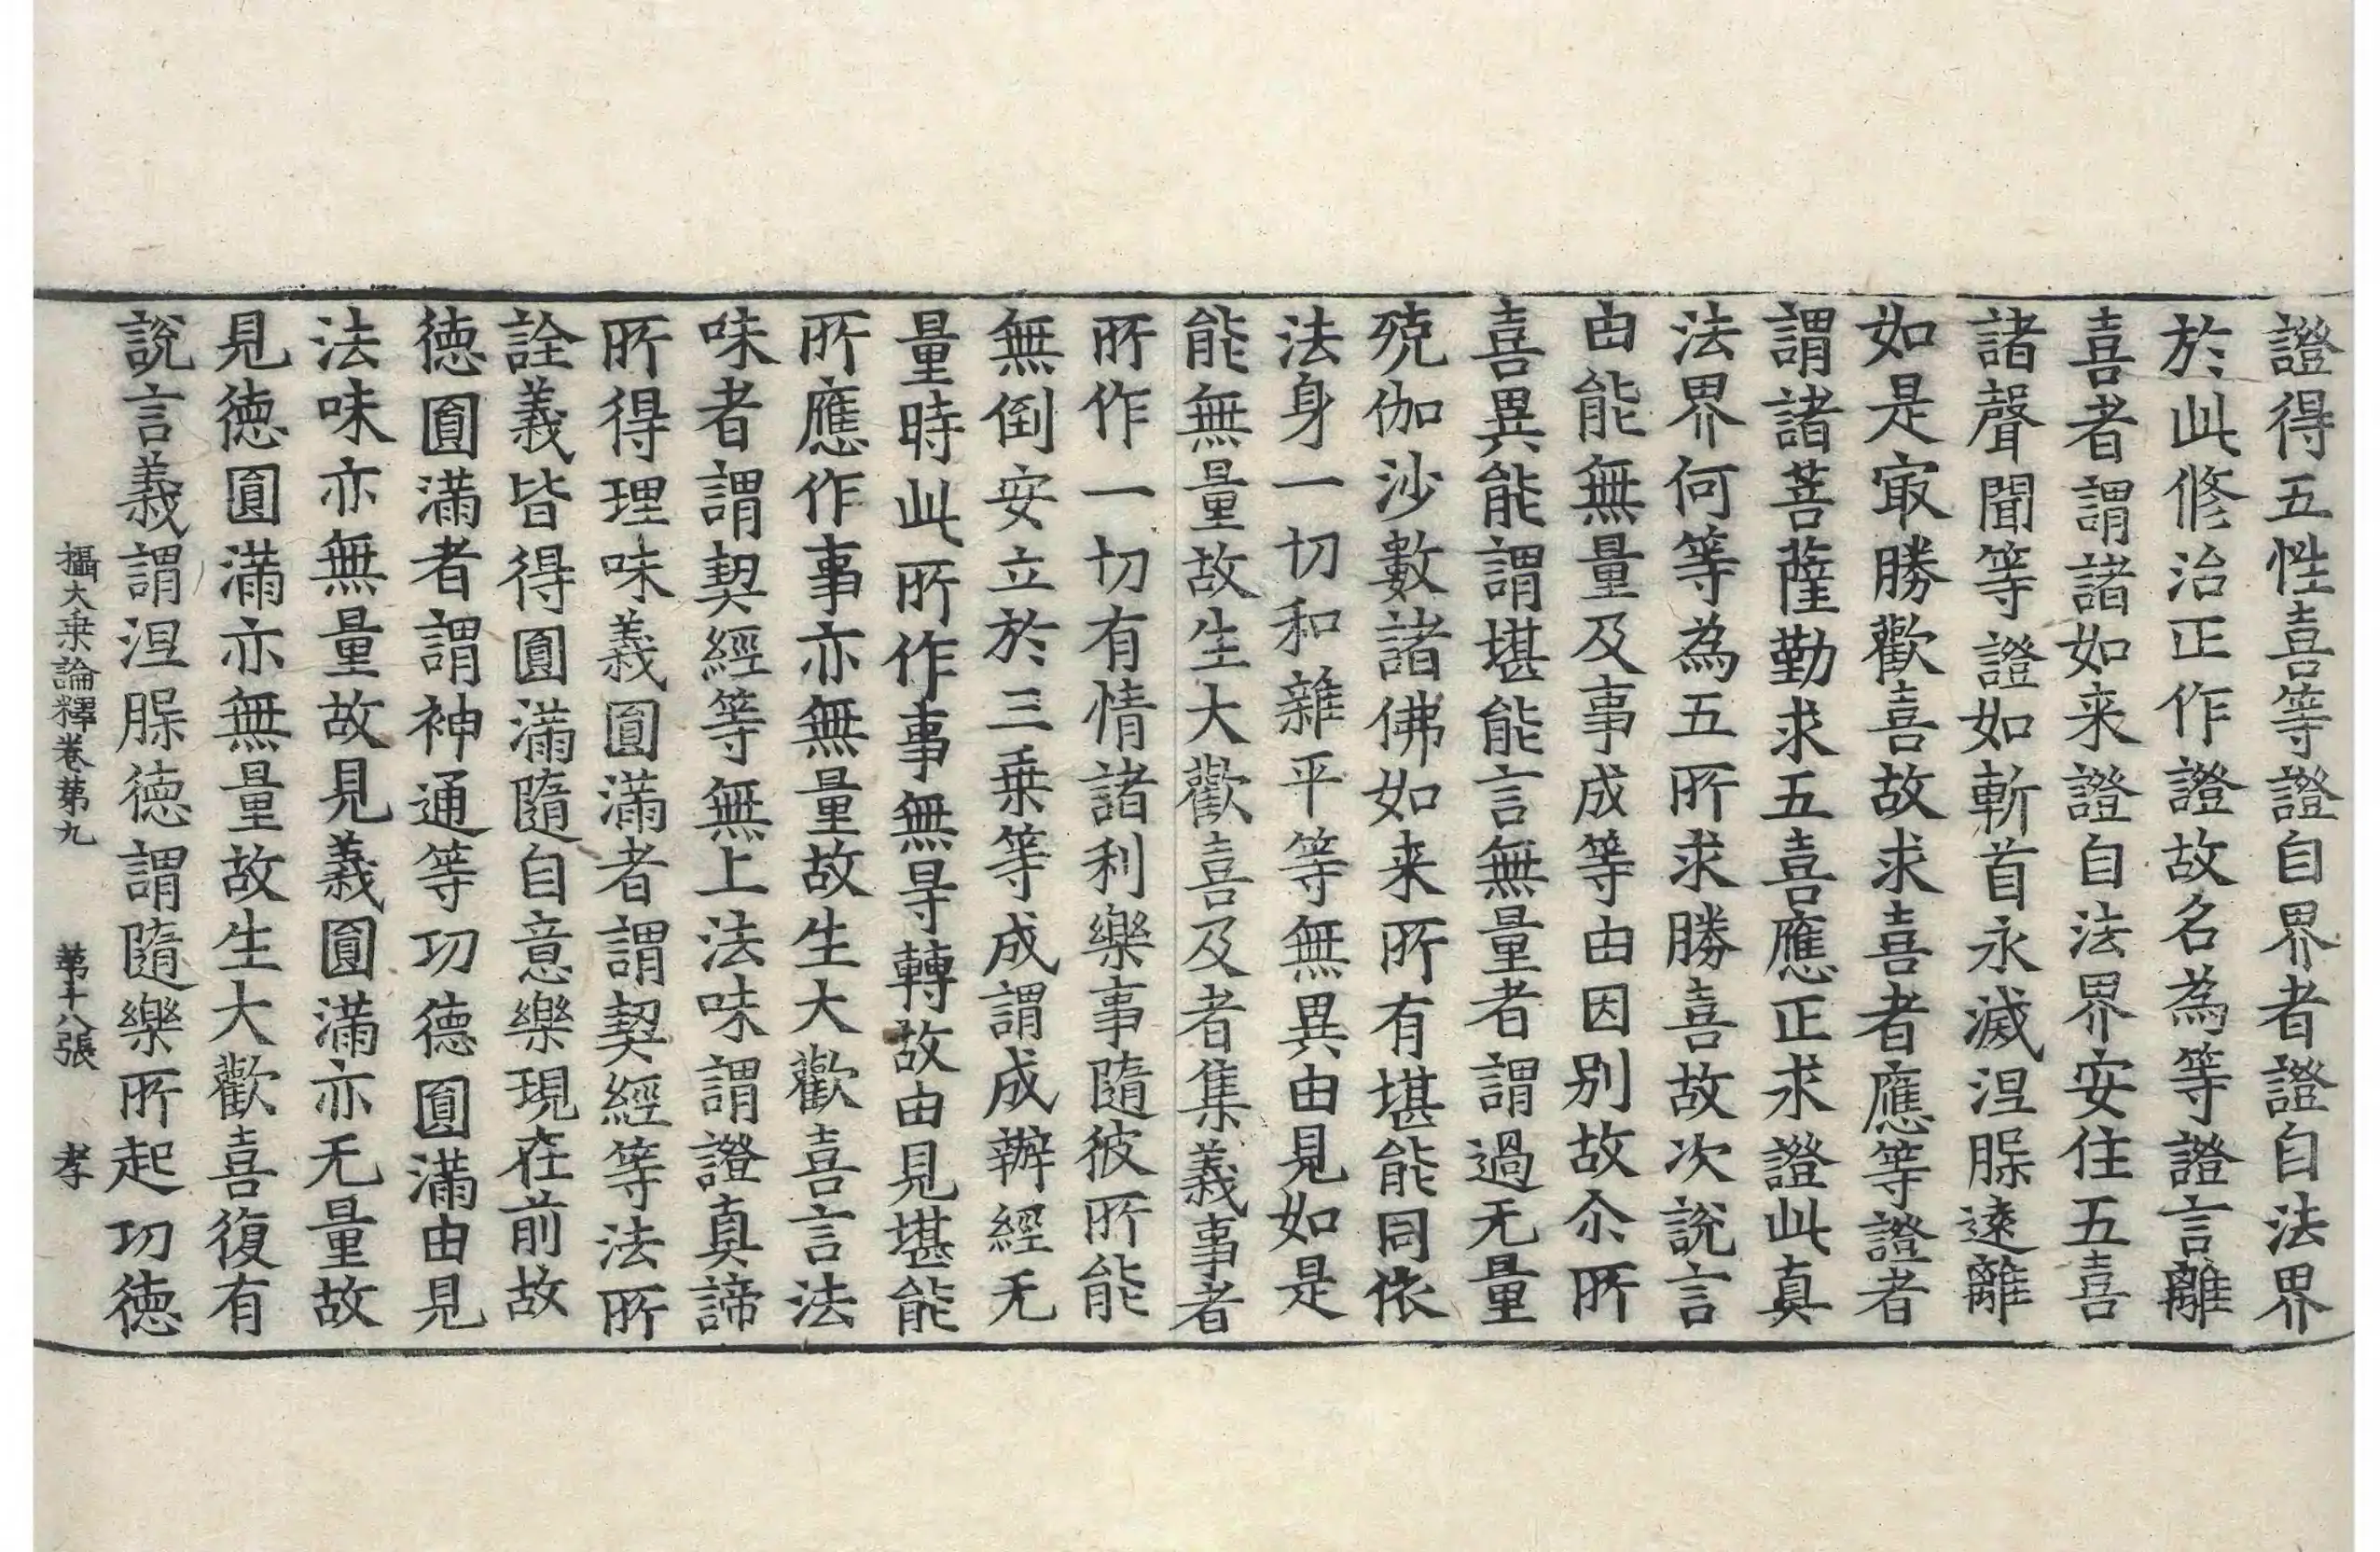 證得五性喜等證自界者證自法界
於此修治正作證故名為等證言離
喜者謂諸如来證自法界安住五喜
諸聲聞等證如斬首永滅涅槃遠離
如是㝡勝歡喜故求喜者應等證者
謂諸菩薩勤求五喜應正求證此真
法界何等為五所求勝喜故次說言
由能無量及事成等由因別故尒所
喜異能謂堪能言無量者謂過无量
殑伽沙數諸佛如来所有堪能同依
法身一切和雜平等無異由見如是
能無量故生大歡喜及者集義事者
所作一切有情諸利樂事隨彼所能
無倒安立於三乗等成謂成辦經无
量時此所作事無㝵轉故由見堪能
所應作事亦無量故生大歡喜言法
味者謂契經等無上法味謂證真諦
所得理味義圓滿者謂契經等法所
詮義皆得圓滿隨自意樂現在前故
德圓滿者謂神通等功德圓滿由見
法味亦無量故見義圓滿亦无量故
見德圓滿亦無量故生大歡喜復有
說言義謂涅槃德謂隨樂所起功德
攝大乗論釋卷第九 第十八張 孝